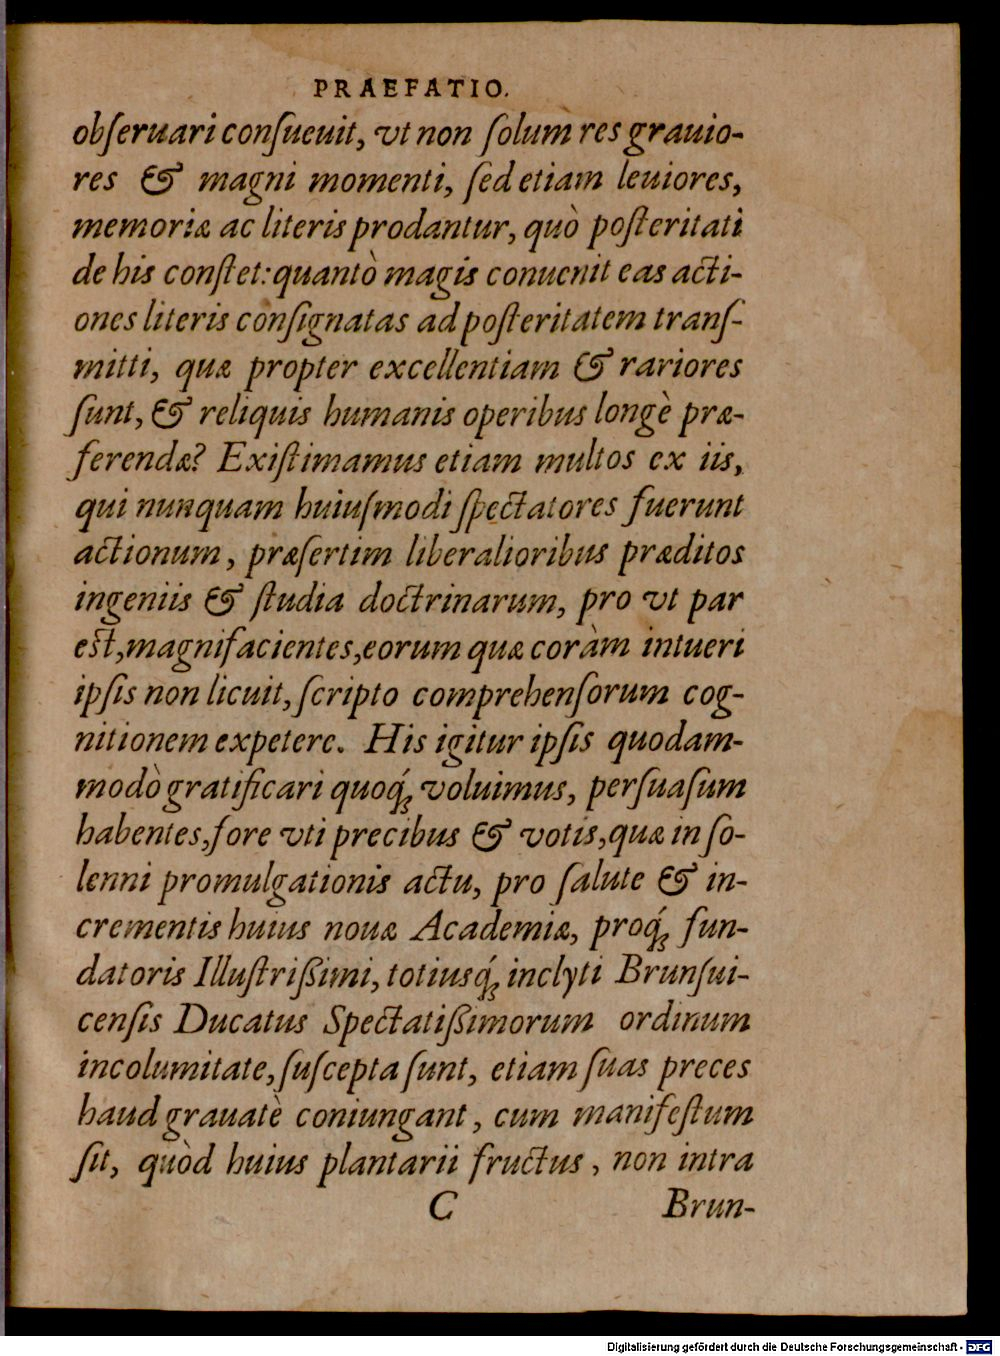 PRAEFATIO.
obſeruari conſueuit, vt non ſolum res grauio-
res & magni momenti, ſed etiam leuiores,
memoriæ ac literis prodantur, quò poſteritati
de his conſtet: quantò magis conuenit eas acti-
ones literis conſignatas ad poſteritatem tranſ-
mitti, quæ propter excellentiam & rariores
ſunt, & reliquis humanis operibus longè præ-
ferendæ? Exiſtimamus etiam multos ex iis,
qui nunquam huiuſmodi ſpectatores fuerunt
actionum, præſertim liberalioribus præditos
ingeniis & ſtudia doctrinarum, pro vt par
eſt, magnifacientes, eorum quæ coràm intueri
ipſis non licuit, ſcripto comprehenſorum cog-
nitionem expetere. His igitur ipſis quodam-
modò gratificari quoq́; voluimus, perſuaſum
habentes, fore vti precibus & votis, quæ in ſo-
lenni promulgationis actu, pro ſalute & in-
crementis huius nouæ Academiæ, proq́; fun-
datoris Illuſtrißimi, totiusq́; inclyti Brunſui-
cenſis Ducatus Spectatißimorum ordinum
incolumitate, ſuſcepta ſunt, etiam ſuas preces
haud grauatè coniungant, cum manifeſtum
ſit, quòd huius plantarii fructus, non intra
C Brun-
Digitalisierung gefördert durch die Deutsche Forschungsgemeinschaft - DFG